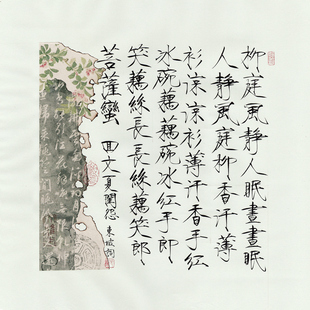 柳庭風靜人眠晝晝眠
人靜風庭柳香汗薄
衫涼涼衫薄汗香手紅
冰碗藕藕碗冰紅手郎
笑藕絲長長絲藕笑郎
菩薩蠻 回文夏閨怨 東坡詞